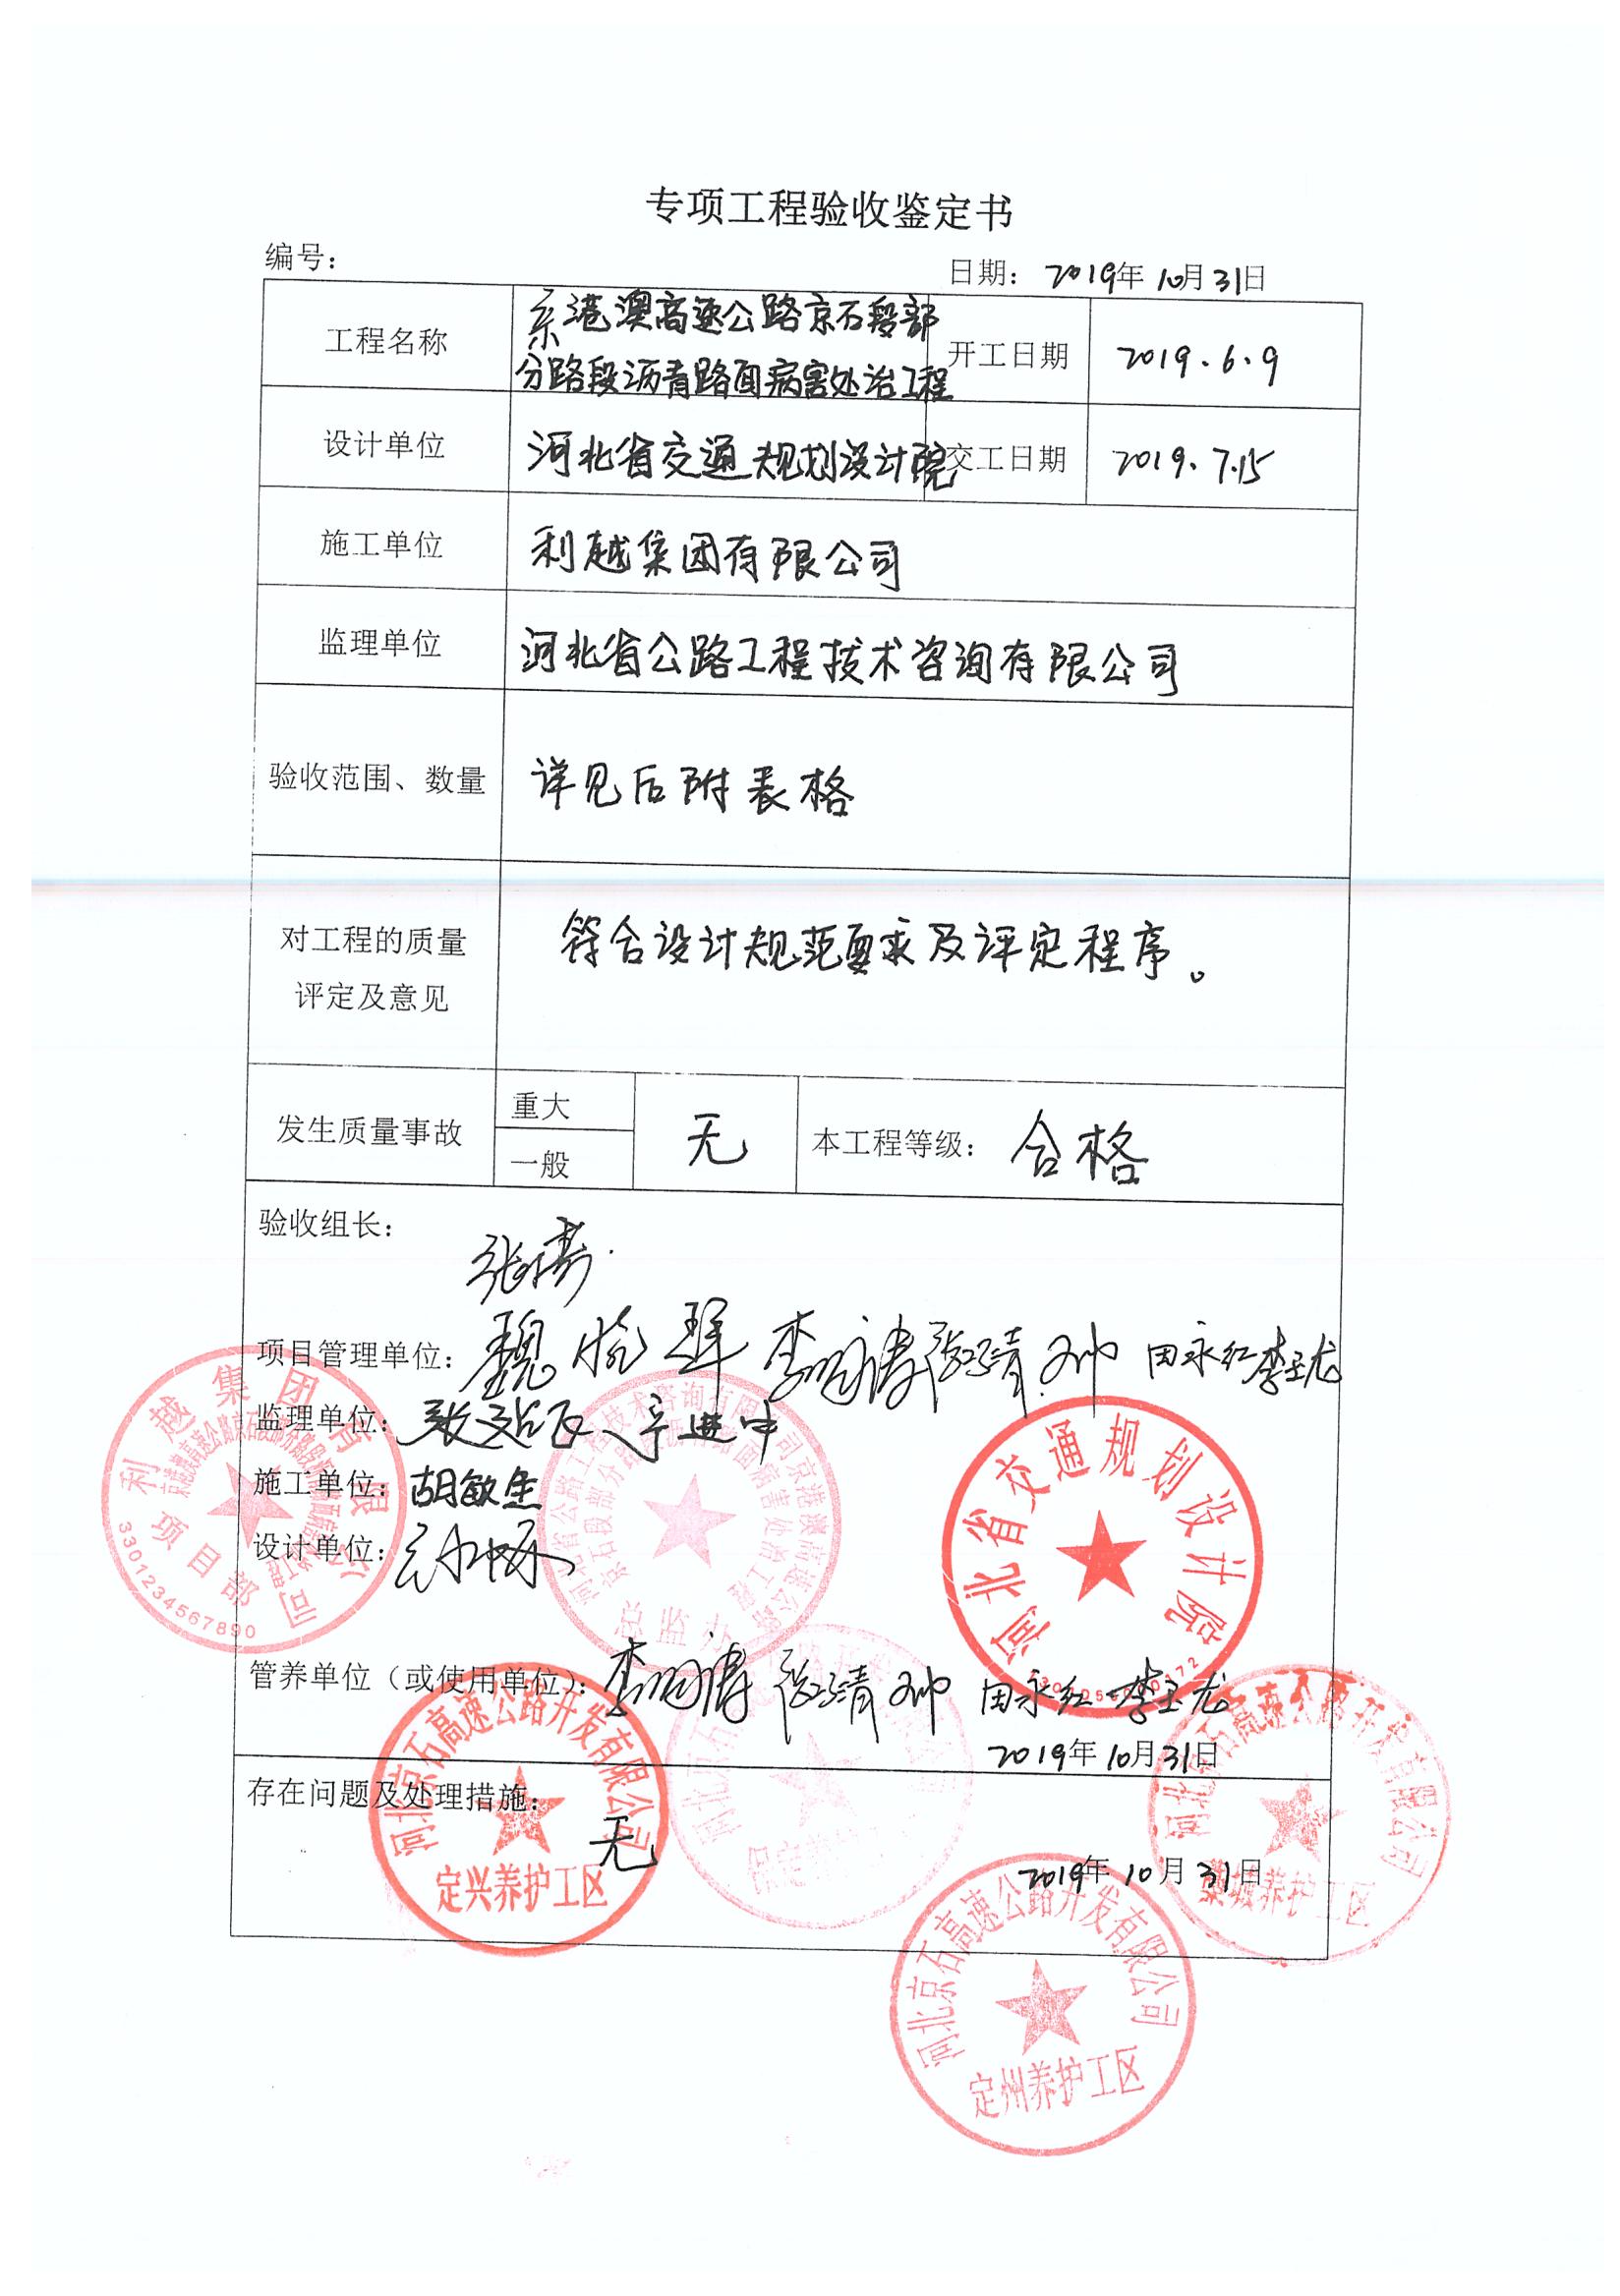 专项工程验收鉴定书
编号：
日期： 2019年 10月 31日
工程名称
京港澳高速公路京石段部
分路段沥青路面病害处治工程
开工日期
2019.6.9
设计单位
河北省交通规划设计院
交工日期
2019.7.15
施工单位
利越集团有限公司
监理单位
河北省公路工程技术咨询有限公司
验收范围、数量
详见后附表格
对工程的质量
评定及意见
符合设计规范要求及评定程序。
发生质量事故
重大
一般
无
本工程等级： 合格
验收组长：
项目管理单位： 田永红
监理单位：
施工单位： 胡敏
设计单位：
管养单位（或使用单位）： 田永红
2019年 10月 31日
存在问题及处理措施：
无
2019年 10月 31日
利越集团有限公司
项目部
3301234567890
河北省公路工程技术咨询有限公司京港澳高速公路
京石段部分路段沥青路面病害处治工程
总监办
河北省交通规划设计院
河北京石高速公路开发有限公司
定兴养护工区
河北京石高速公路开发有限公司
定州养护工区
河北京石高速公路开发有限公司
养护工区
养护工区